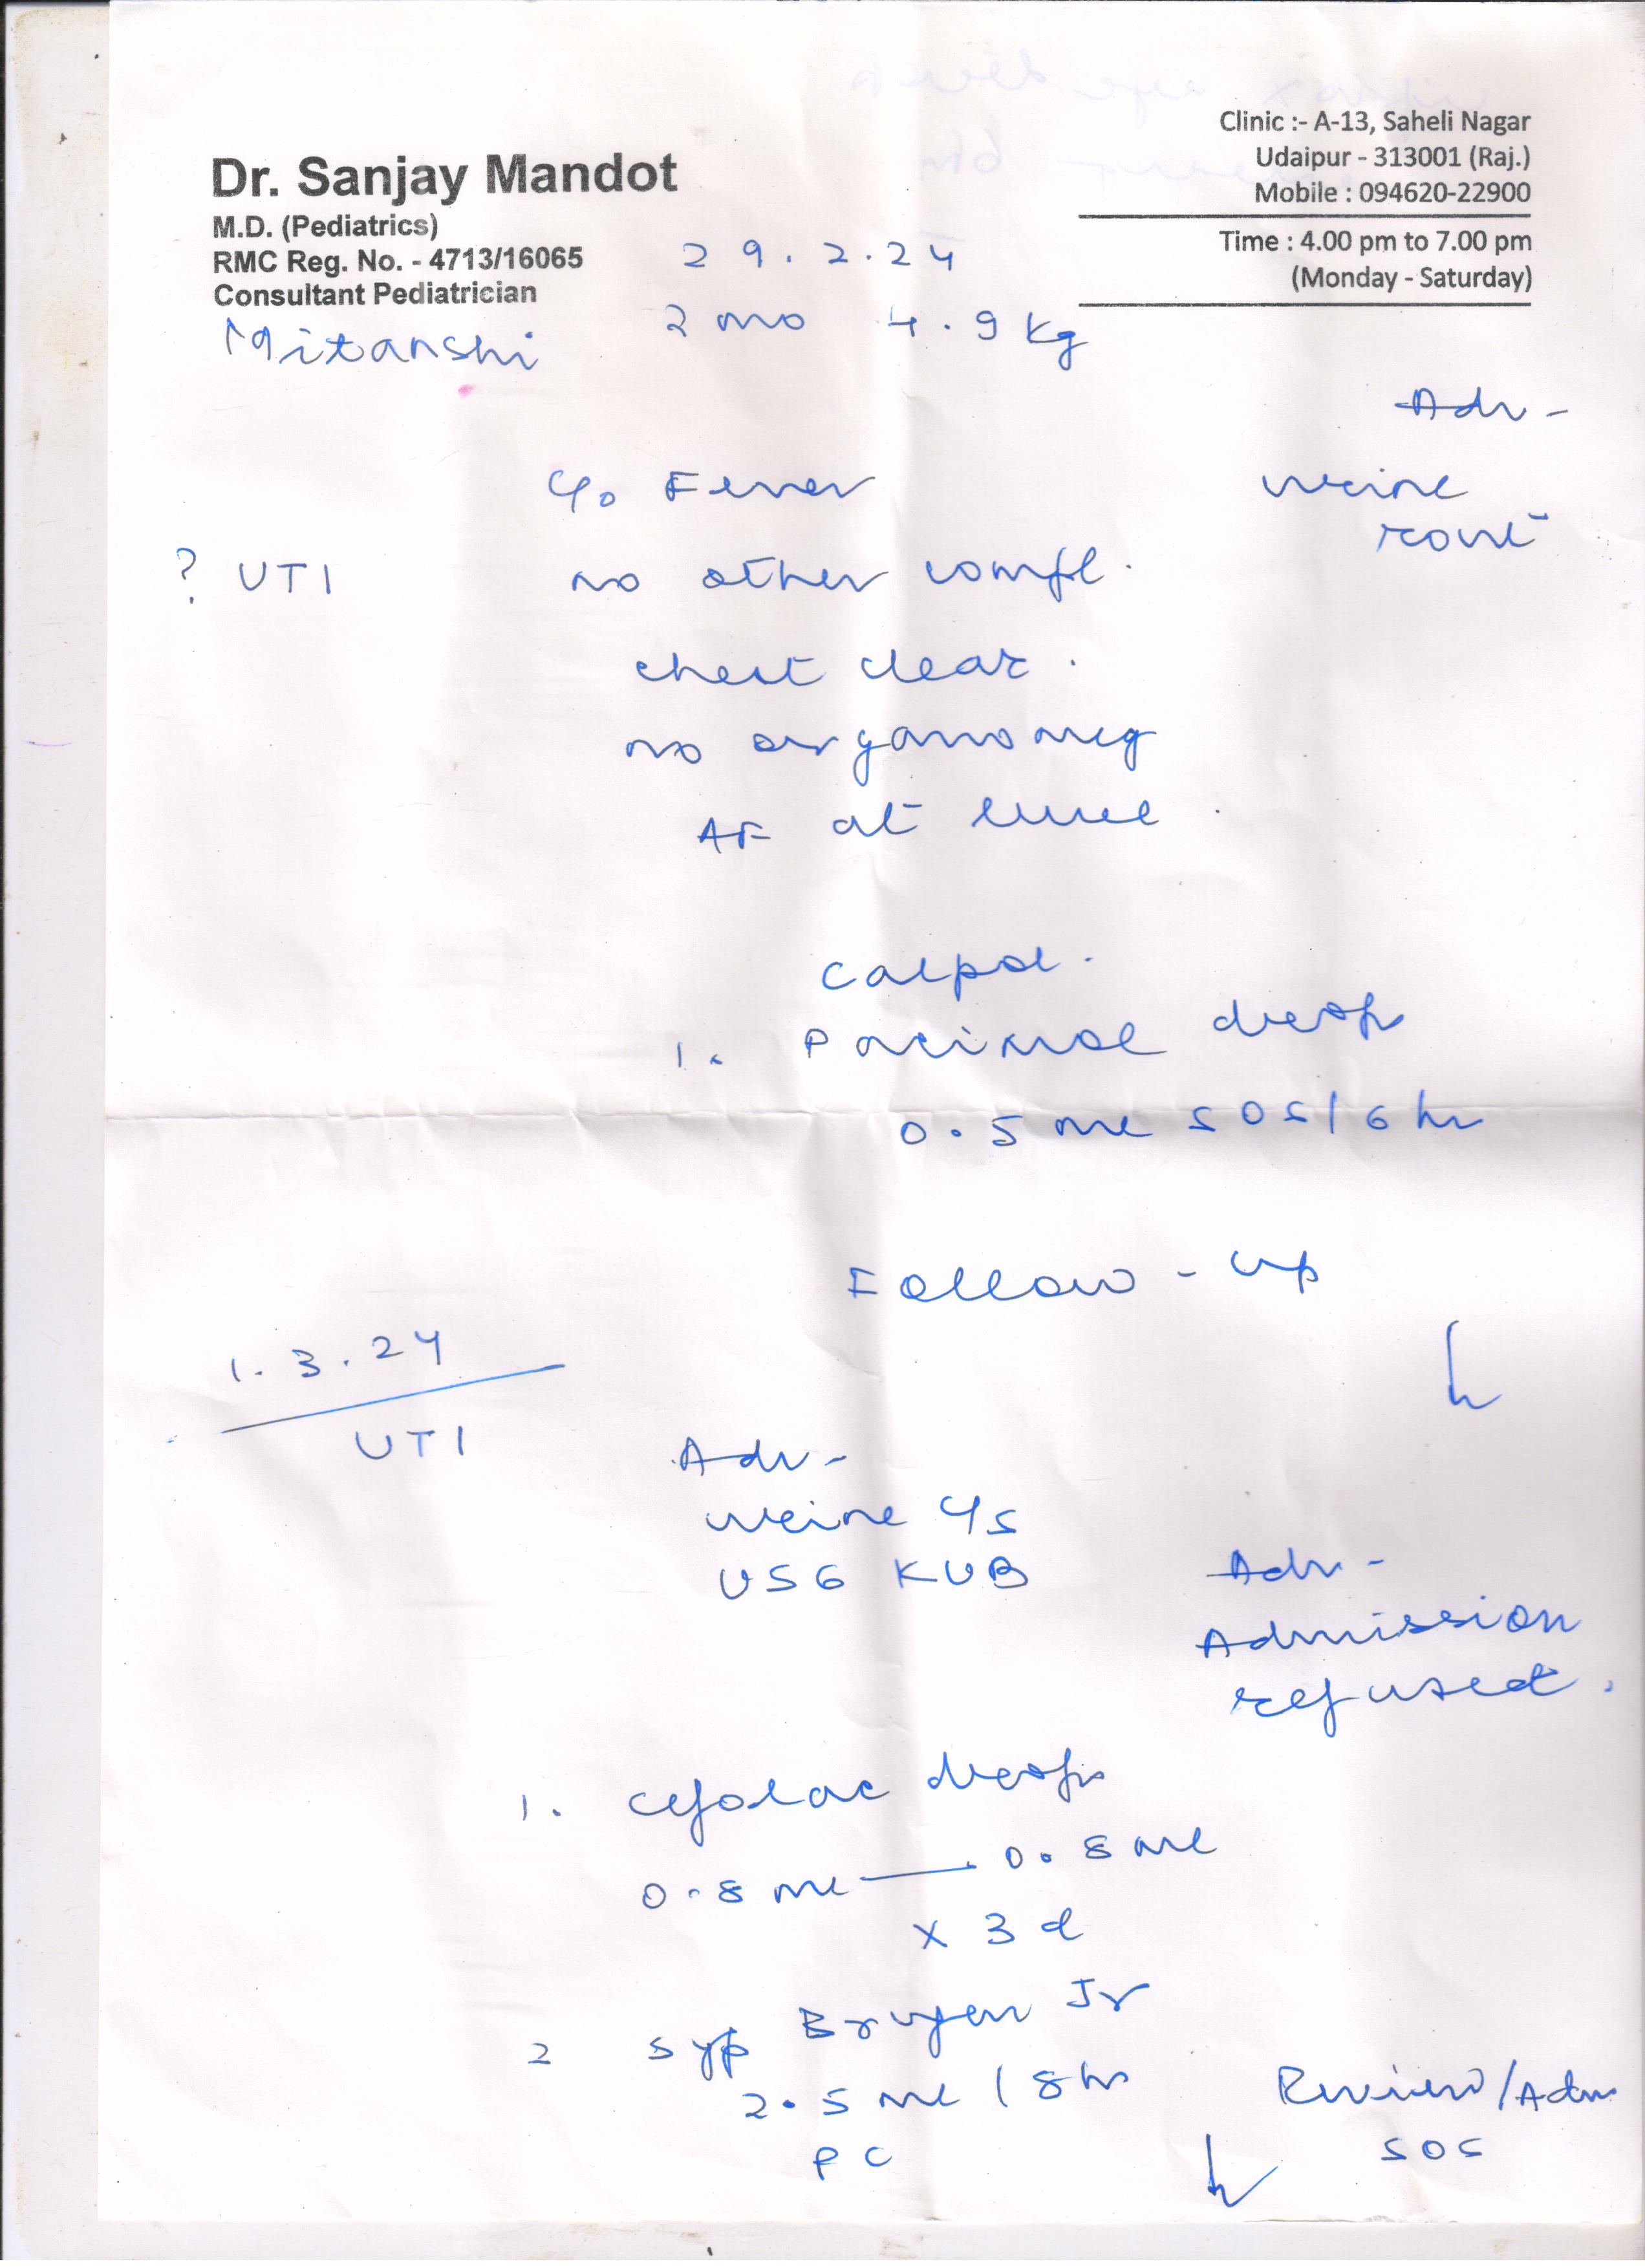 Clinic :- A-13, Saheli Nagar
Udaipur - 313001 (Raj.)
Mobile : 094620-22900
Time : 4.00 pm to 7.00 pm
(Monday - Saturday)
Dr. Sanjay Mandot
M.D. (Pediatrics)
RMC Reg. No. - 4713/16065
Consultant Pediatrician
29.2.24
Mitanshi 2 mo 4.9 kg
Adv -
c/o Fever
urine
rout
? UTI
no other compl.
chest clear.
no organomeg
AF at level.
Calpol.
1. drops
0.5 ml SOS/6 hr
Follow-up
1.3.24
UTI
Adv-
urine c/s
USG KUB
Adv-
Admission
refused.
1. Cefolac drops
0.8 ml — 0.8 ml
x 3 d
2 Syp Brugen Jr
2.5 ml / 8 hr
PC
Review/Adm
SOS